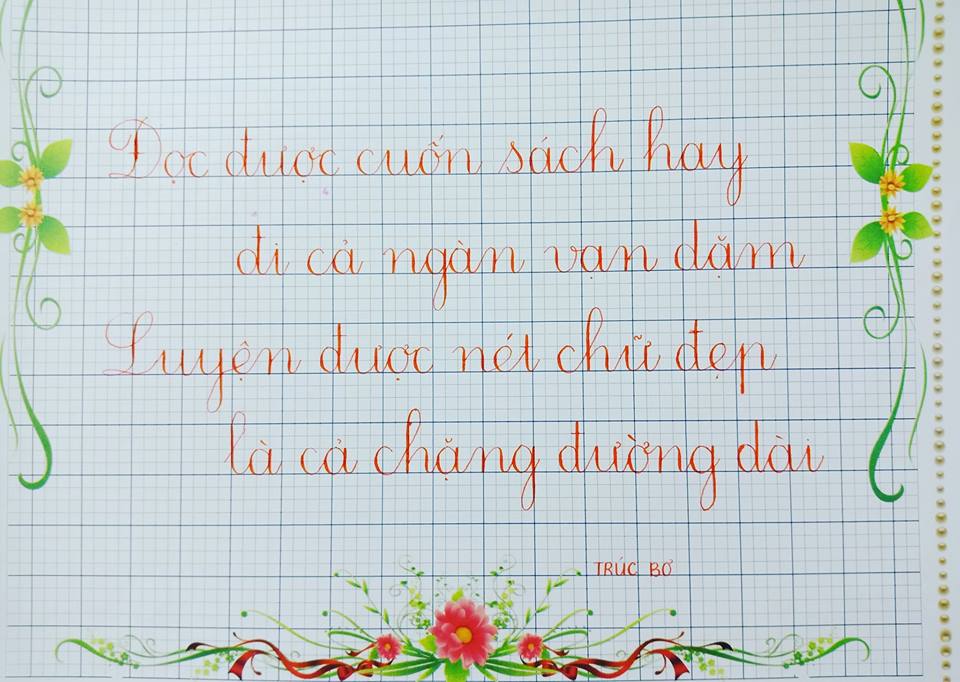 Đọc được cuốn sách hay
đi cả ngàn vạn dặm
Luyện được nét chữ đẹp
là cả chặng đường dài
TRÚC BƠ